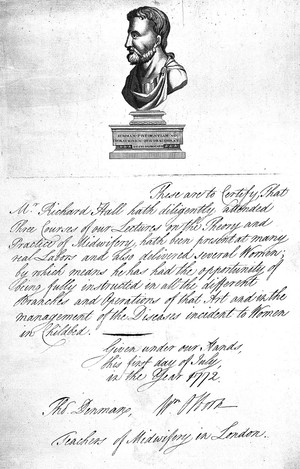 These are to Certify, That
Mr. Richard Hall hath diligently attended
three Courses of our Lectures on the Theory and
Practice of Midwifery, hath been present at many
real Labors and also delivered several Women;
by which means he has had the opportunity of
being fully instructed in all the different
Branches and Operations of that Art and in the
management of the Diseases incident to Women
in Childbed.
Given under our Hands,
this first day of July,
in the Year 1772.
Tho. Denman, Wm.
Teachers of Midwifery in London.